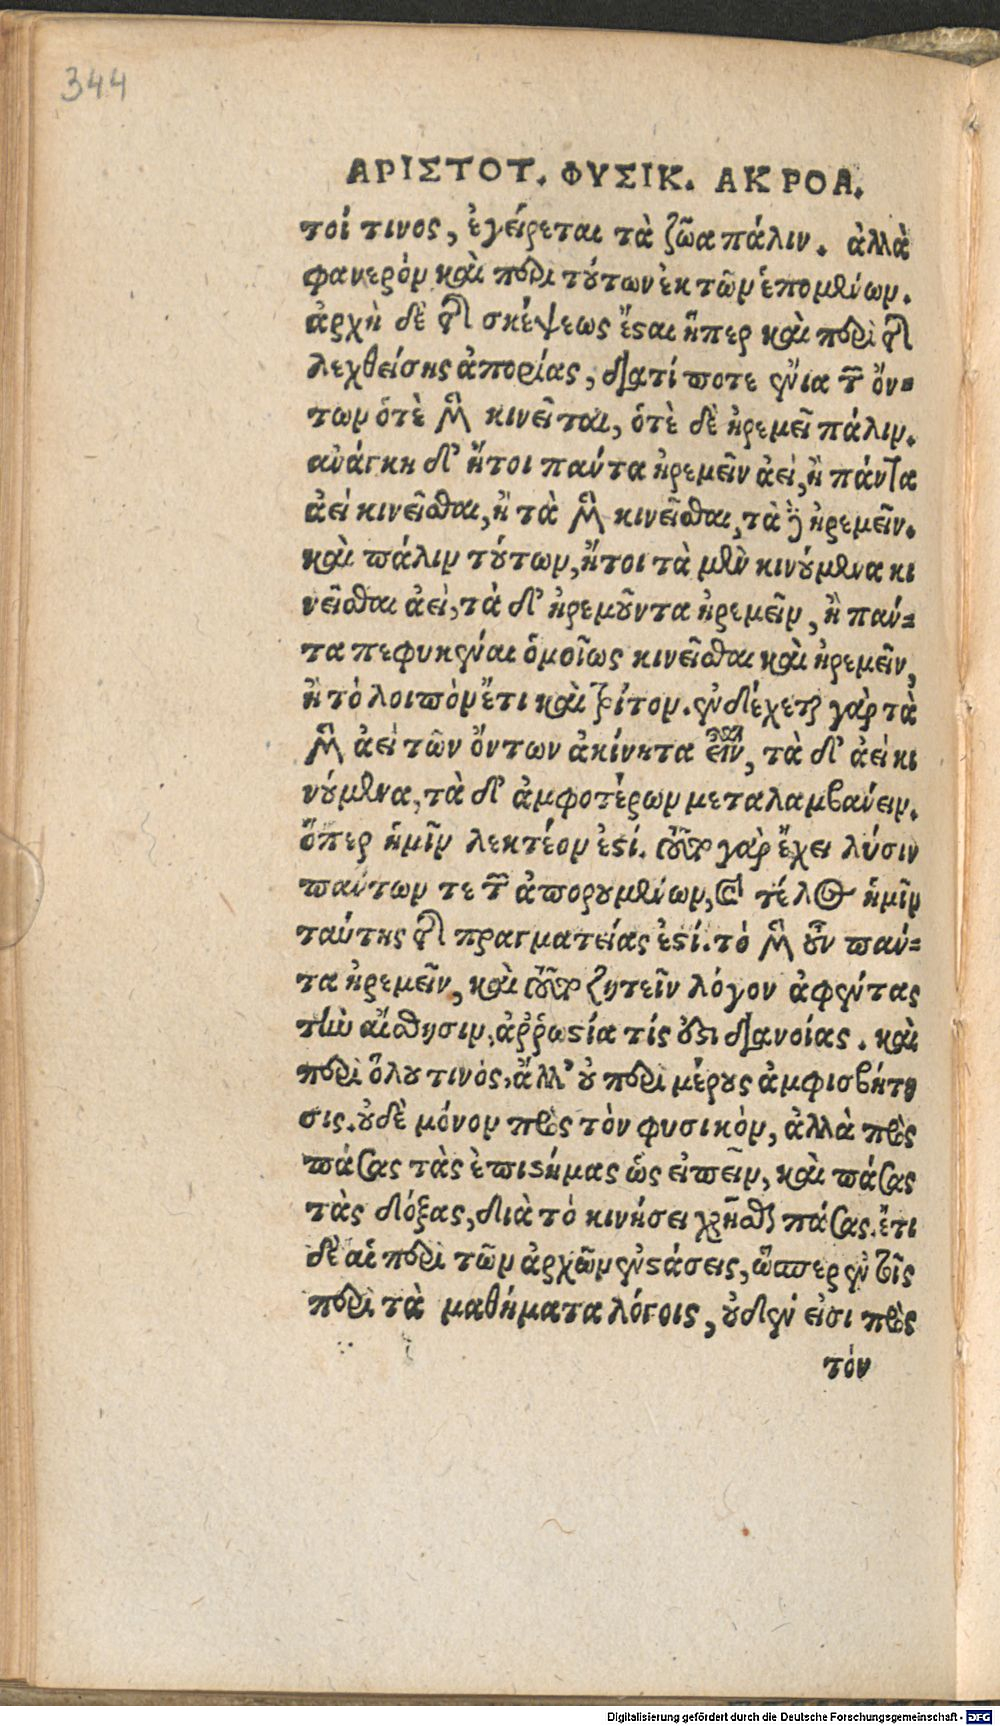 344
ΑΡΙΣΤΟΤ. ΦΥΣΙΚ. ΑΚΡΟΑ.
τοί τινος, ἐγείρεται τὰ ζῶα πάλιν. ἀλλὰ
φανερὸν καὶ περὶ τούτων ἐκ τῶν ἑπομένων.
ἀρχὴ δὲ τῆς σκέψεως ἔσται ἥπερ καὶ περὶ τῆς
λεχθείσης ἀπορίας, διατί ποτε ἔνια τῶν ὄν-
των ὁτὲ μὲν κινεῖται, ὁτὲ δὲ ἠρεμεῖ πάλιν.
ἀνάγκη δ' ἤτοι πάντα ἠρεμεῖν ἀεί, ἢ πάντα
ἀεὶ κινεῖσθαι, ἢ τὰ μὲν κινεῖσθαι, τὰ δὲ ἠρεμεῖν.
καὶ πάλιν τούτων, ἤτοι τὰ μὲν κινούμενα κι
νεῖσθαι ἀεί, τὰ δ' ἠρεμοῦντα ἠρεμεῖν, ἢ πάν-
τα πεφυκέναι ὁμοίως κινεῖσθαι καὶ ἠρεμεῖν,
ἢ τὸ λοιπὸν ἔτι καὶ τρίτον. ἐνδέχεται γὰρ τὰ
μὲν ἀεὶ τῶν ὄντων ἀκίνητα εἶναι, τὰ δ' ἀεὶ κι
νούμενα, τὰ δ' ἀμφοτέρων μεταλαμβάνειν.
ὅπερ ἡμῖν λεκτέον ἐστί. τοῦτο γὰρ ἔχει λύσιν
πάντων τε τῶν ἀπορουμένων, καὶ τέλος ἡμῖν
ταύτης τῆς πραγματείας ἐστί. τὸ μὲν οὖν πάν-
τα ἠρεμεῖν, καὶ τοῦτο ζητεῖν λόγον ἀφέντας
τὴν αἴσθησιν, ἀῤῥωστία τίς ἐστι διανοίας. καὶ
περὶ ὅλου τινὸς, ἀλλ' οὐ περὶ μέρους ἀμφισβήτη
σις. οὐδὲ μόνον πρὸς τὸν φυσικὸν, ἀλλὰ πρὸς
πάσας τὰς ἐπιστήμας ὡς εἰπεῖν, καὶ πάσας
τὰς δόξας, διὰ τὸ κινήσει χρῆσθαι πάσας. ἔτι
δὲ αἱ περὶ τῶν ἀρχῶν ἐνστάσεις, ὥσπερ ἐν τοῖς
περὶ τὰ μαθήματα λόγοις, οὐδέν εἰσι πρὸς
τὸν
Digitalisierung gefördert durch die Deutsche Forschungsgemeinschaft - DFG